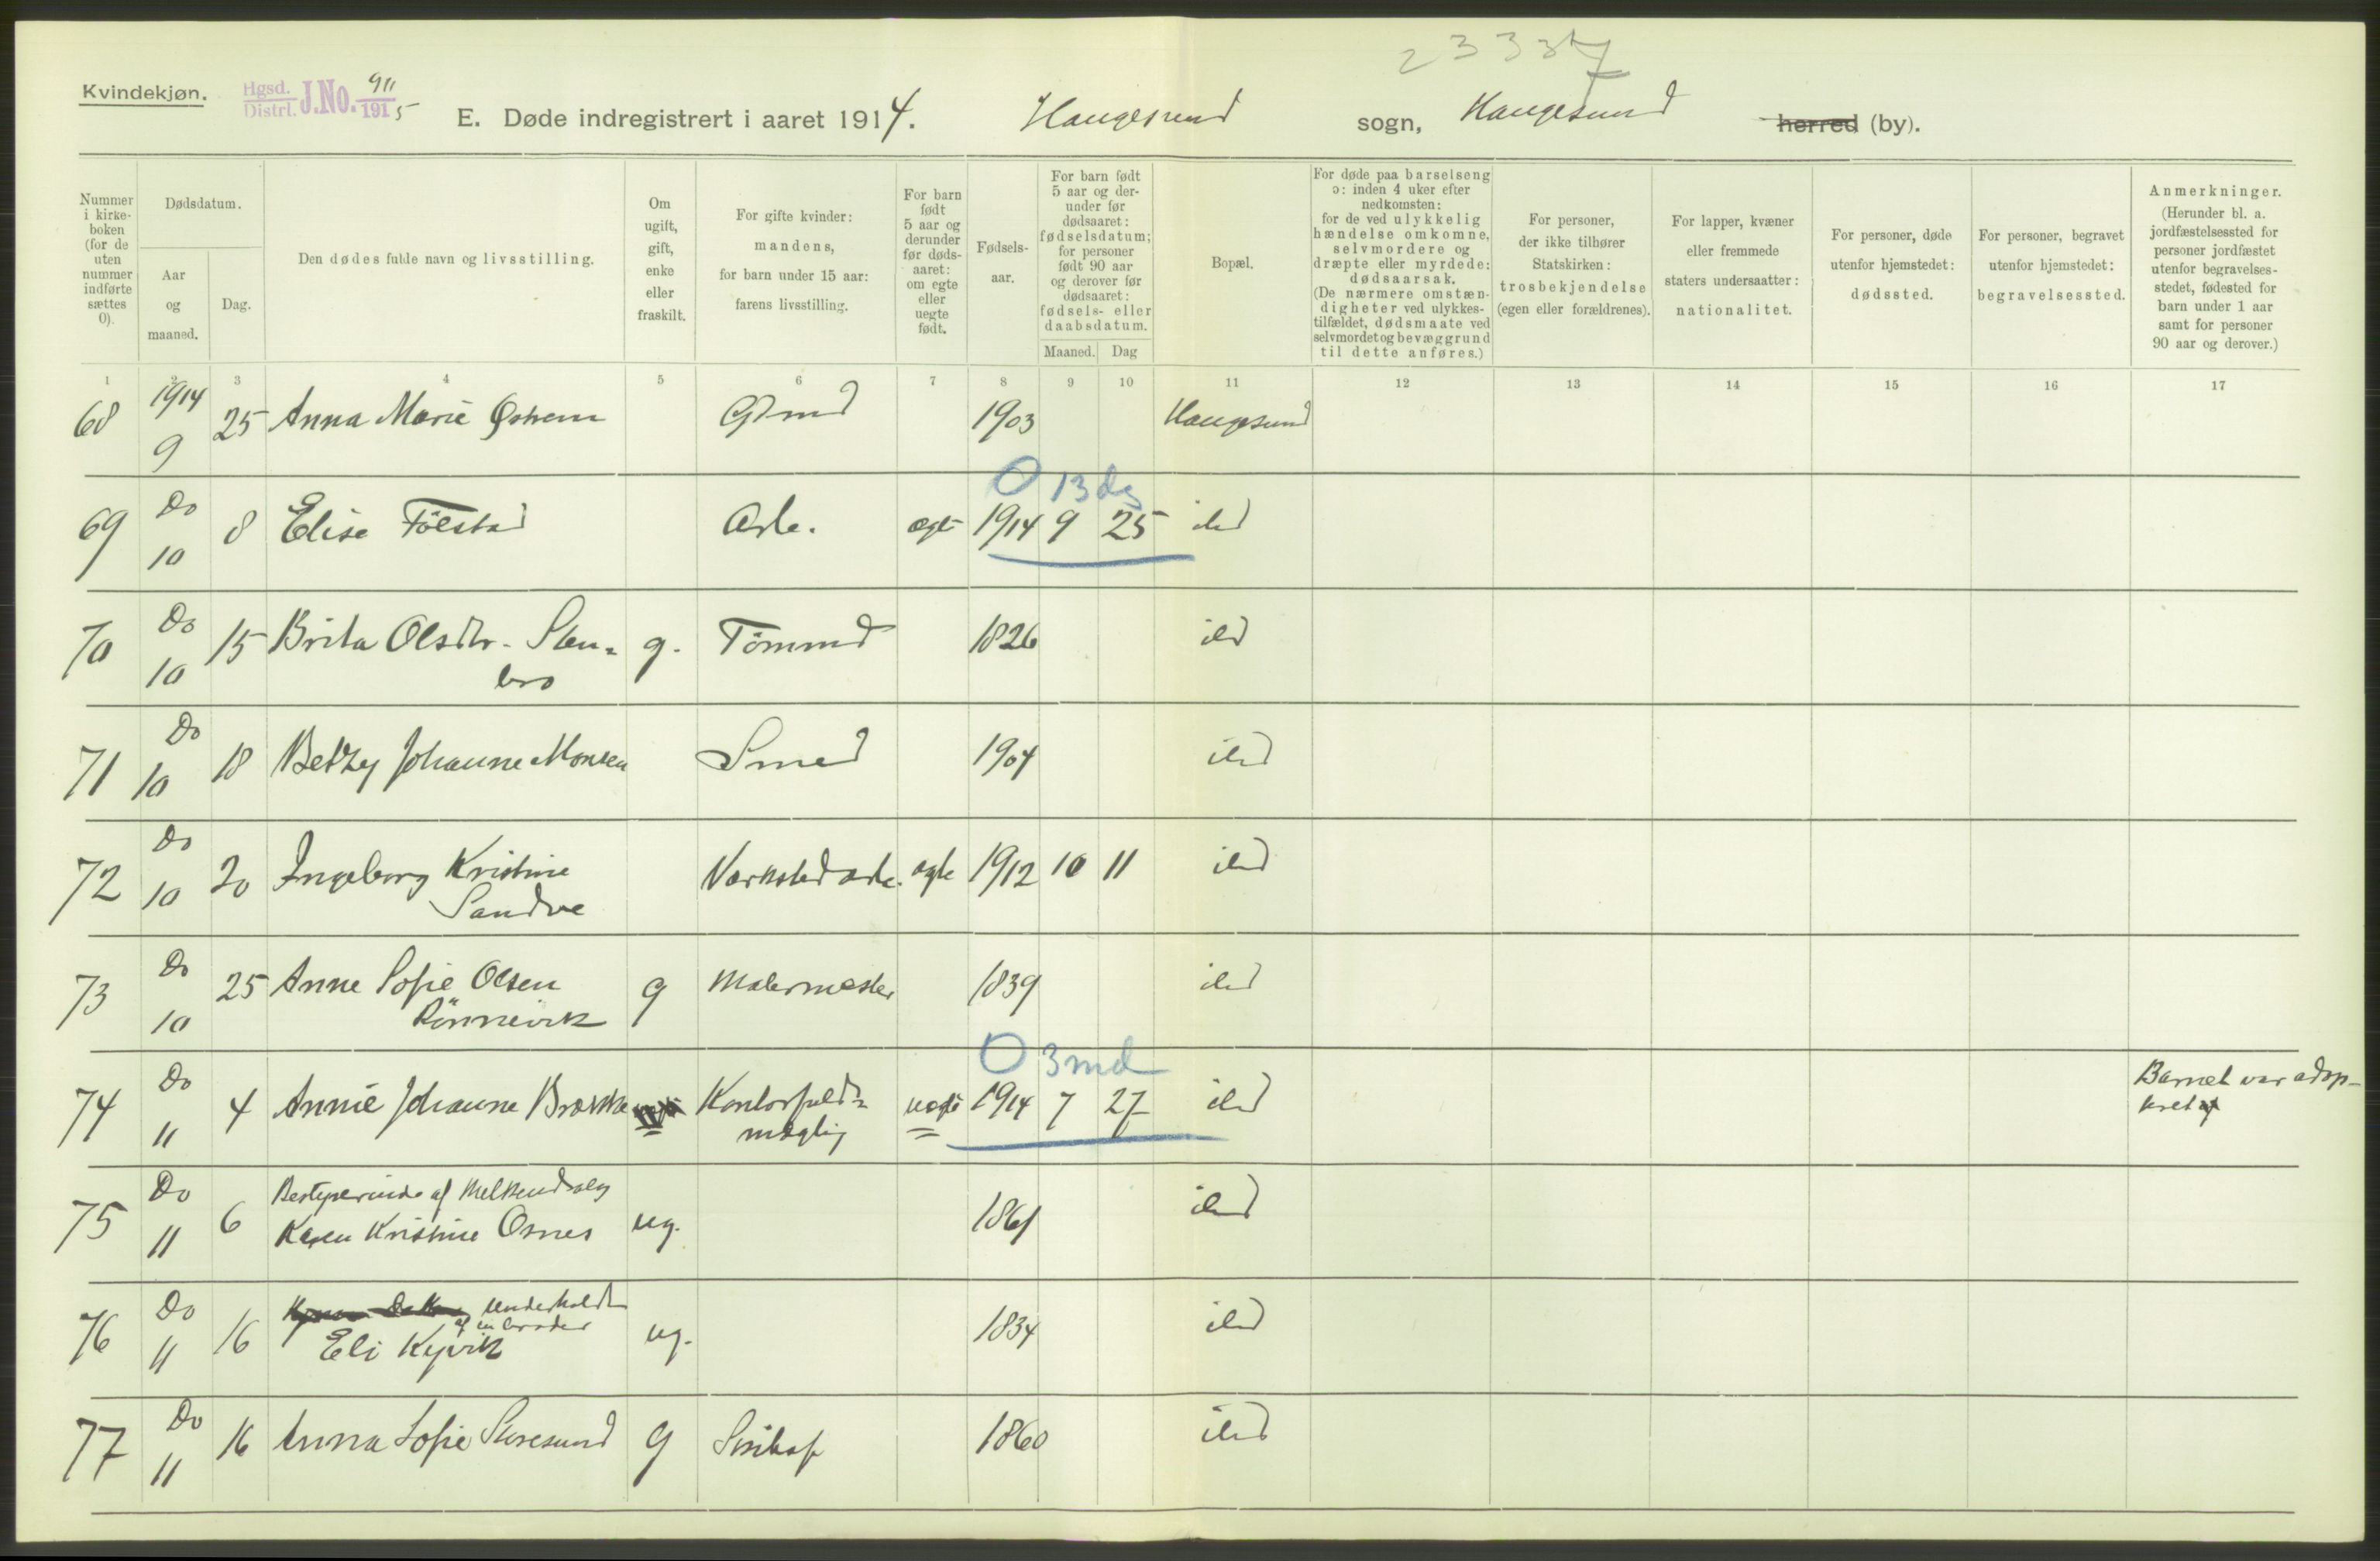 23337
Kvindekjøn.
Hgsd. Distrl. J.No. 911 1915
E. Døde indregistrert i aaret 1914. Haugesund sogn, Haugesund herred (by).
Nummer i kirke-boken (for de uten nummer indførte sættes 0).
Dødsdatum.
Aar og maaned.
Dag.
Den dødes fulde navn og livsstilling.
Om ugift, gift, enke eller fraskilt.
For gifte kvinder: mandens, for barn under 15 aar: farens livsstilling.
For barn født 5 aar og derunder før døds-aaret: om egte eller uegte født.
Fødsels-aar.
For barn født 5 aar og der-under før dødsaaret: fødselsdatum; for personer født 90 aar og derover før dødsaaret: fødsels- eller daabsdatum.
Maaned. Dag
Bopæl.
For døde paa barselseng ɔ: inden 4 uker efter nedkomsten: for de ved ulykkelig hændelse omkomne, selvmordere og dræpte eller myrdede: dødsaarsak. (De nærmere omstæn-digheter ved ulykkes-tilfældet, dødsmaate ved selvmordet og bevæggrund til dette anføres.)
For personer, der ikke tilhører Statskirken: trosbekjendelse (egen eller forældrenes).
For lapper, kvæner eller fremmede staters undersaatter: nationalitet.
For personer, døde utenfor hjemstedet: dødssted.
For personer, begravet utenfor hjemstedet: begravelsessted.
Anmerkninger. (Herunder bl. a. jordfæstelsessted for personer jordfæstet utenfor begravelses-stedet, fødested for barn under 1 aar samt for personer 90 aar og derover.)
1 2 3 4 5 6 7 8 9 10 11 12 13 14 15 16 17
68 1914 9 25 Anna Marie Østrem 1903 Haugesund
0 13 dg
69 Do 10 8 Elise Fölstad Arb. egte 1914 9 25 ild
70 Do 10 15 Brita Olsdtr. Sten=
bro g. Tömmd 1826 ild
71 Do 10 18 Betzy Johanne Monsen Smed 1904 ild
72 Do 10 20 Ingeborg Kristine
Sandve Værkstedarb. egte 1912 10 11 ild
73 Do 10 25 Anne Sofie Olsen
Rönnevik g Malermester 1839 ild
0 3 md
74 Do 11 4 Annie Johanne Brække Kontorfuld=
mægtig uegte 1914 7 27 ild Barnet var adop-
teret af
75 Do 11 6 Bestyrerinde af Melkeudsalg
Karen Kristine Osnes ug. 1861 ild
76 Do 11 16 Underholdt
af en broder
Eli Kyvik ug. 1834 ild
77 Do 11 16 Anna Sofie Storesund g Snibaf 1860 ild